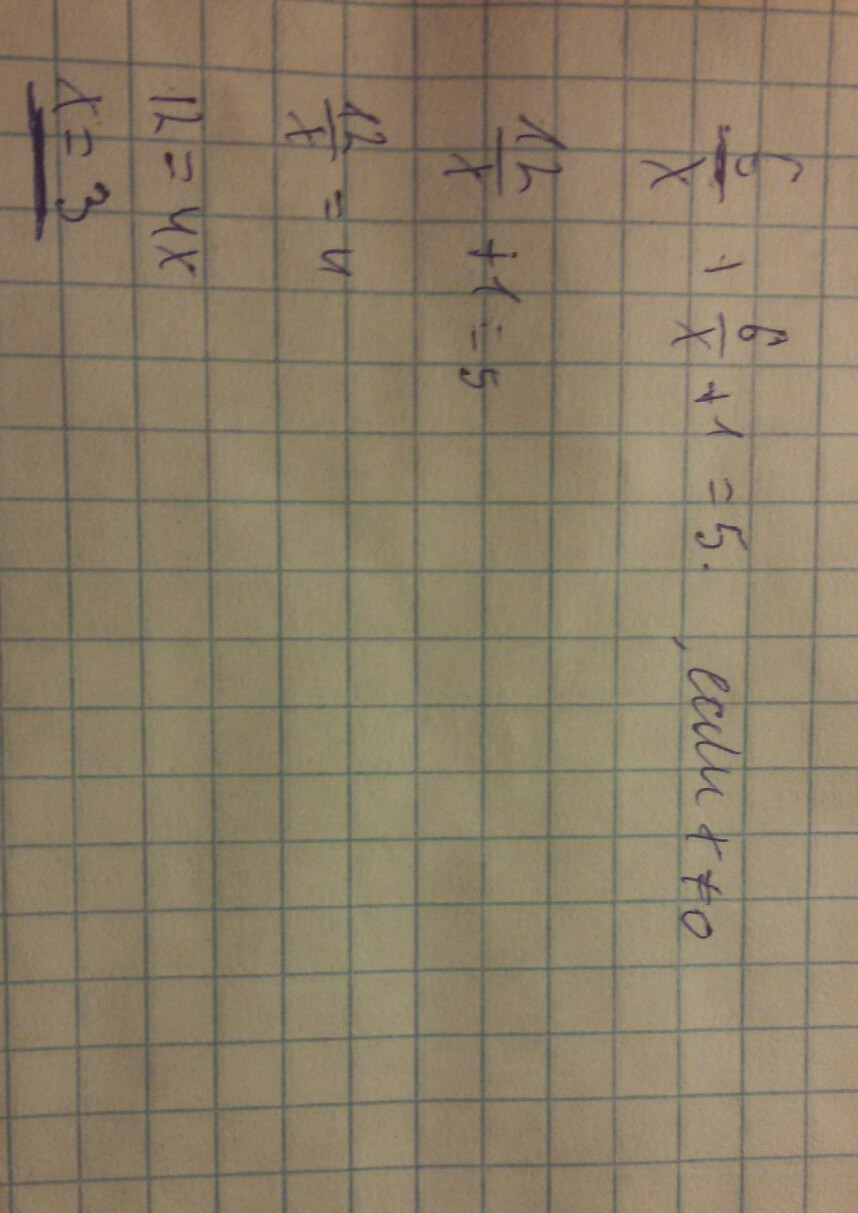 6/x + 6/x + 1 = 5. , если x ≠ 0
12/x + 1 = 5
12/x = 4
12 = 4x
x = 3